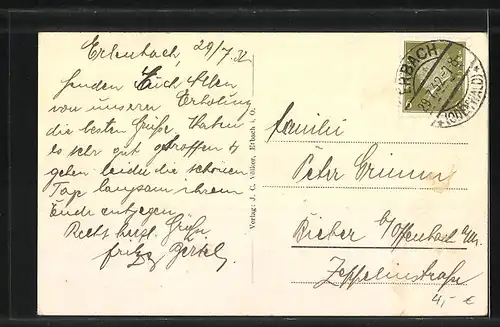 Erlenbach, 29/7.32
Senden Euch Allen
von unserer Erholung
die besten Grüße. Haben
es sehr gut getroffen &
gehen leider die schönen
Tage langsam ihrem
Ende entgegen
Recht herzl. Grüße
Fritz &
Verlag: J. C. Völker, Erbach i. O.
ERBACH
(ODENWALD)
Familie
Peter Grimm
Bieber b/Offenbach a/M.
Zeppelinstraße
4,- €